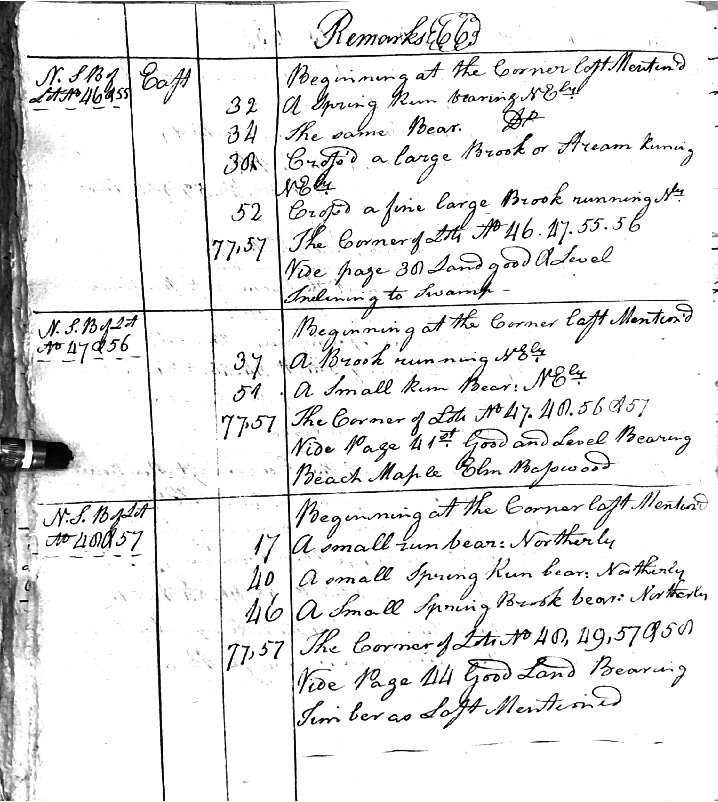 Remarks &c &c
N. S. B of East Beginning at the Corner last Mention'd
Lot No 46 & 55 32 A Spring Run bearing NEly
34 The same Bear. Do
38 Cross'd a large Brook or Stream runing
NEly
52 Cross'd a fine large Brook running Nly
77,57 The Corner of Lots No 46. 47. 55. 56
Vide page 38 Land good & Level
Inclining to Swamp -
N. S. B of Lot Beginning at the Corner last Mention'd
No 47 & 56 37 A Brook running NEly
51 A Small run Bear: NEly
77,57 The Corner of Lots No 47. 48. 56 & 57
Vide Page 41st Good and Level Bearing
Beach Maple Elm Basswood
N. S. B of Lot Beginning at the Corner last Mention'd
No 48 & 57 17 A small run bear: Northerly
40 A small Spring Run bear: Northerly
46 A Small Spring Brook bear: Northerly
77,57 The Corner of Lots No 48, 49, 57 & 58
Vide Page 44 Good Land Bearing
Timber as Last Mentioned